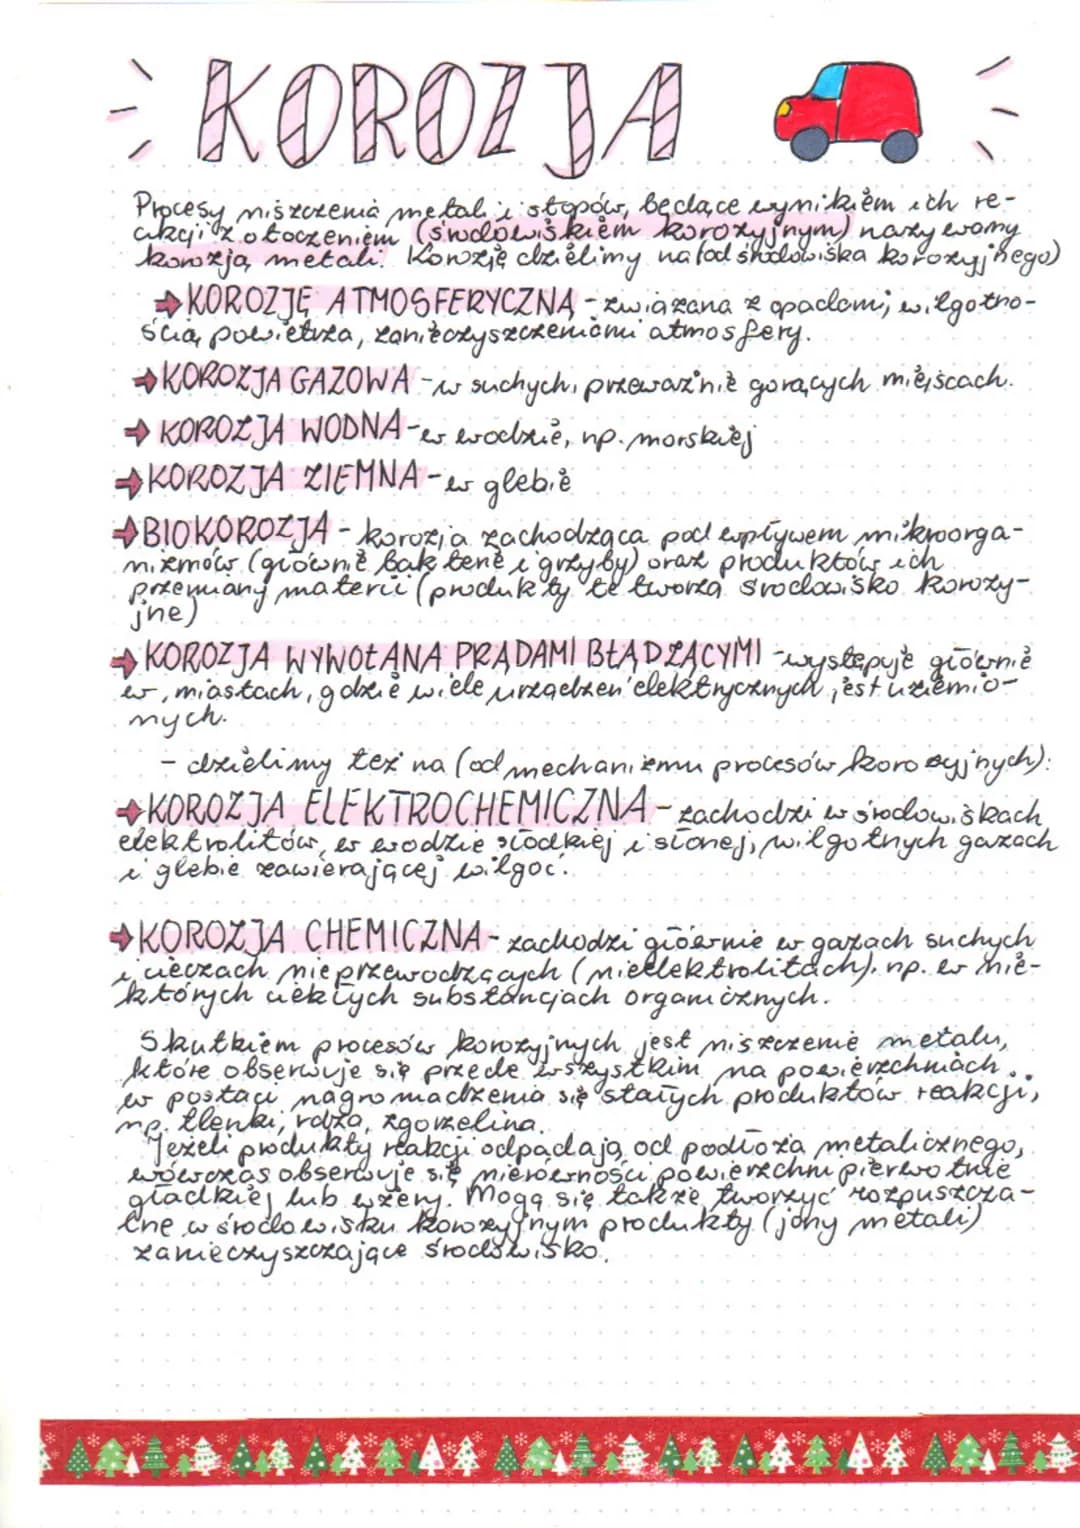 KOROZJA
Procesy niszczenia metali i stopów, będące wynikiem ich re-
akcji z otoczeniem (środowiskiem korozyjnym) nazywamy
korozją metali. Korozję dzielimy na (od środowiska korozyjnego)
→ KOROZJĘ ATMOSFERYCZNĄ - związana z opadami, wilgotno-
ścią powietrza, zanieczyszczeniami atmosfery.
→ KOROZJA GAZOWA - w suchych, przeważnie gorących miejscach.
→ KOROZJA WODNA - w wodzie, np. morskiej
→ KOROZJA ZIEMNA - w glebie
→ BIOKOROZJA - korozja zachodząca pod wpływem mikroorga-
nizmów (głównie bakterie i grzyby) oraz produktów ich
przemiany materii (produkty te tworzą środowisko korozy-
jne)
→ KOROZJA WYWOŁANA PRĄDAMI BŁĄDZĄCYMI - występuje głównie
w miastach, gdzie wiele urządzeń elektrycznych jest uziemio-
nych.
- dzielimy też na (od mechanizmu procesów korozyjnych):
→ KOROZJA ELEKTROCHEMICZNA - zachodzi w środowiskach
elektrolitów, w wodzie słodkiej i słonej, wilgotnych gazach
i glebie zawierającej wilgoć.
→ KOROZJA CHEMICZNA - zachodzi głównie w gazach suchych
i cieczach nieprzewodzących (nieelektrolitach), np. w nie-
których ciekłych substancjach organicznych.
Skutkiem procesów korozyjnych jest niszczenie metalu,
które obserwuje się przede wszystkim na powierzchniach
w postaci nagromadzenia się stałych produktów reakcji,
np. tlenki, rdza, zgorzelina.
Jeżeli produkty reakcji odpadają od podłoża metalicznego,
wówczas obserwuje się nierówności powierzchni pierwotnie
gładkiej lub wżery. Mogą się także tworzyć rozpuszcza-
lne w środowisku korozyjnym produkty (jony metali)
zanieczyszczające środowisko.